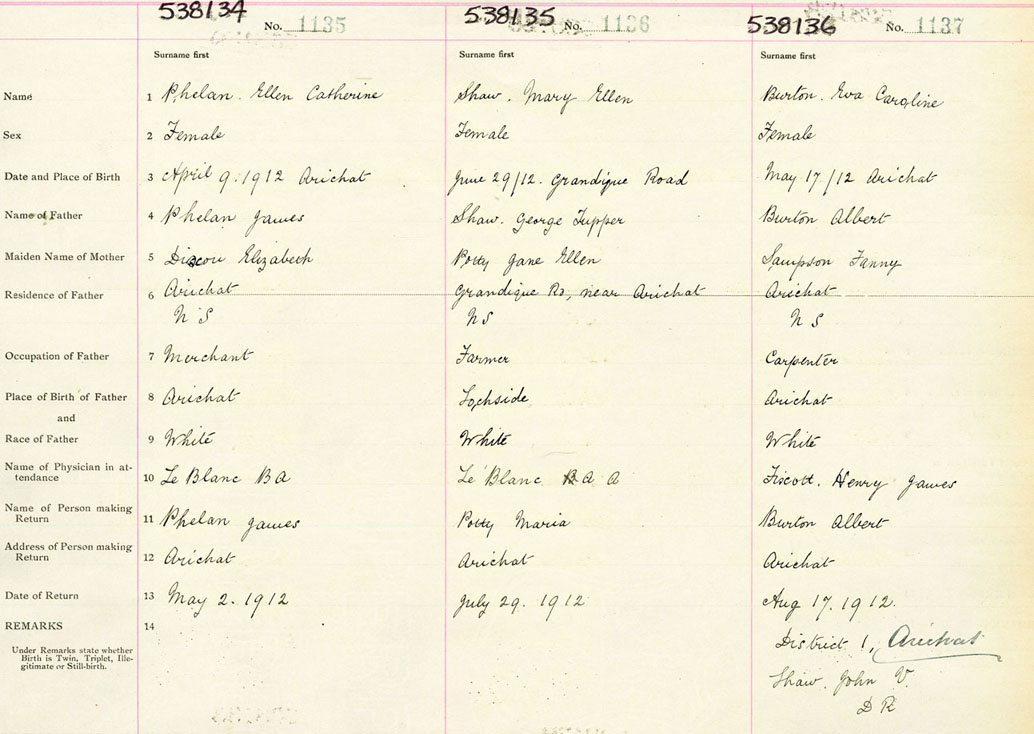 538134 No. 1135 538135 No. 1136 538136 No. 1137
Surname first Surname first Surname first
Name 1 Phelan. Ellen Catherine Shaw. Mary Ellen Burton. Eva Caroline
Sex 2 Female Female Female
Date and Place of Birth 3 April 9. 1912 Arichat June 29/12. Grandique Road May 17/12 Arichat
Name of Father 4 Phelan James Shaw. George Tupper Burton Albert
Maiden Name of Mother 5 Elizabeth Potty Jane Ellen Sampson Fanny
Residence of Father 6 Arichat Grandique Rd, near Arichat Arichat
N S N S N S
Occupation of Father 7 Merchant Farmer Carpenter
Place of Birth of Father 8 Arichat Lochside Arichat
and
Race of Father 9 White White White
Name of Physician in at-
tendance 10 Le Blanc B A Le Blanc B A A Henry James
Name of Person making
Return 11 Phelan James Potty Maria Burton Albert
Address of Person making
Return 12 Arichat Arichat Arichat
Date of Return 13 May 2. 1912 July 29. 1912 Aug 17. 1912.
REMARKS 14
District 1, Arichat
Under Remarks state whether
Birth is Twin, Triplet, Ille-
gitimate or Still-birth.
Shaw. John V.
D R